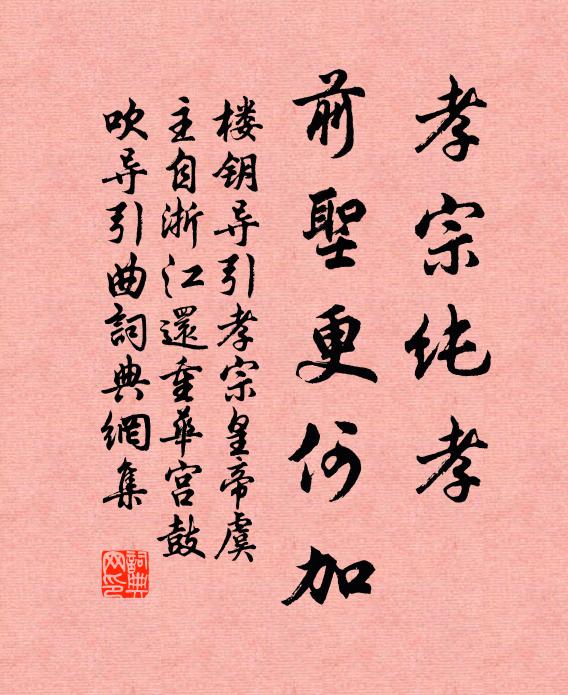 孝宗纯孝
前聖更何加
楼钥导引孝宗皇帝虞
主自浙江還重華宫鼓
吹导引曲詞典網集
詞典
网印